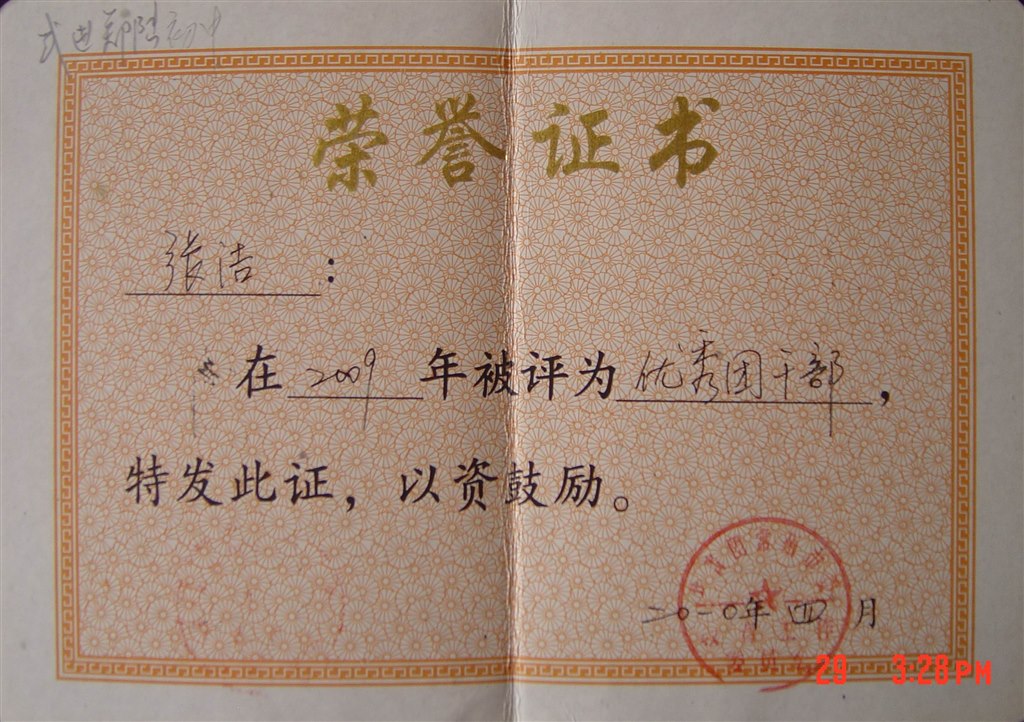 武进郑陆初中
荣誉证书
张洁：
在2009年被评为优秀团干部，
特发此证，以资鼓励。
二〇一〇年四月
29 3:28PM